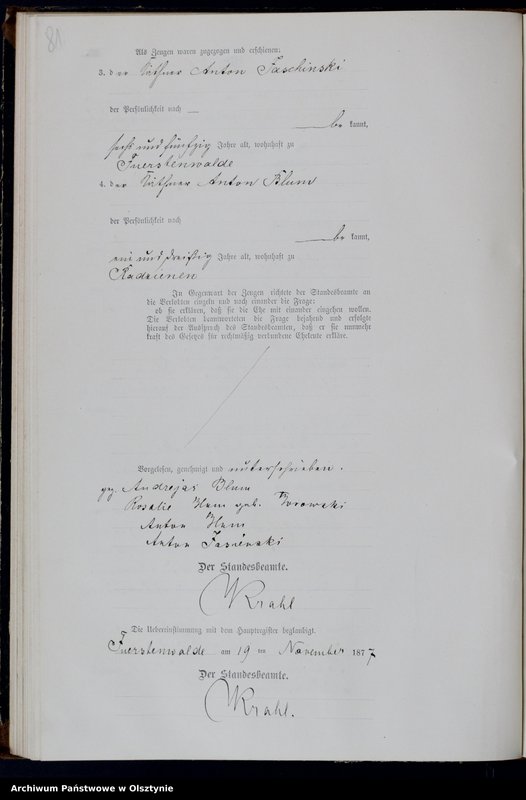 81.
Als Zeugen waren zugezogen und erschienen:
3. der Käthner Anton Jaschinski
der Persönlichkeit nach —
be kannt,
sechs und fünfzig Jahre alt, wohnhaft zu
Fuerstenwalde
4. der Käthner Anton Blum
der Persönlichkeit nach
be kannt,
ein und dreißig Jahre alt, wohnhaft zu
Radzienen
In Gegenwart der Zeugen richtete der Standesbeamte an
die Verlobten einzeln und nach einander die Frage:
ob sie erklären, daß sie die Ehe mit einander eingehen wollen.
Die Verlobten beantworteten die Frage bejahend und erfolgte
hierauf der Ausspruch des Standesbeamten, daß er sie nunmehr
kraft des Gesetzes für rechtmäßig verbundene Eheleute erkläre.
Vorgelesen, genehmigt und unterschrieben.
gez. Andrejas Blum
Rosalie Blum geb. Borowski
Anton Blum
Anton Jasienski
Der Standesbeamte.
Krahl
Die Uebereinstimmung mit dem Hauptregister beglaubigt.
Fuerstenwalde am 19 ten November 1877
Der Standesbeamte.
Krahl.
Archiwum Państwowe w Olsztynie